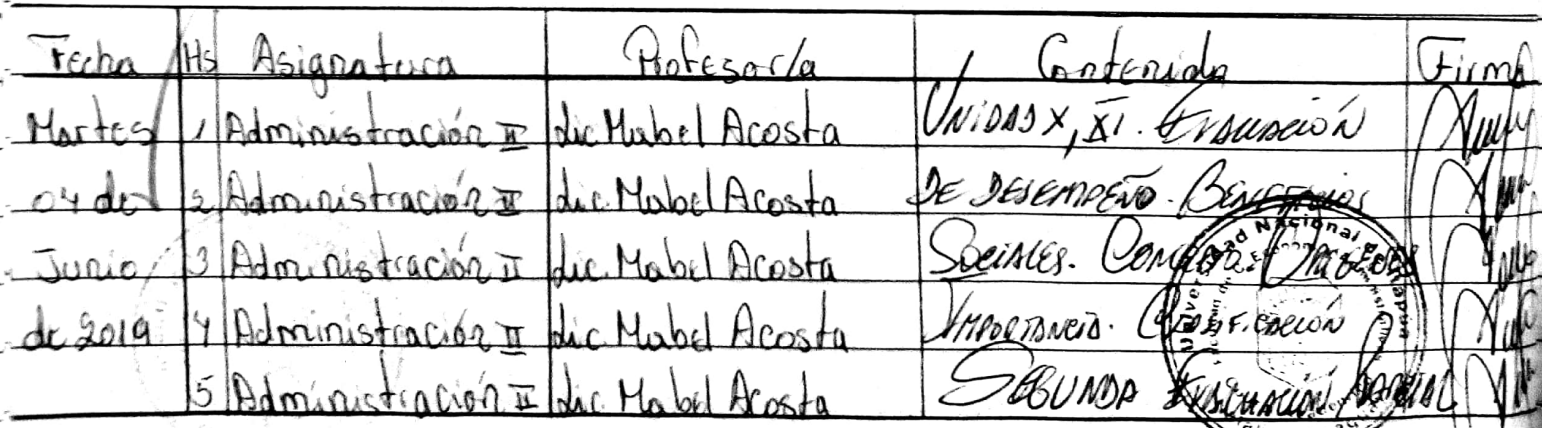 Fecha Hs Asignatura Profesor/a Contenido Firma
Martes 1 Administración II Lic Mabel Acosta UNIDAD X, XI. EVALUACIÓN
04 de 2 Administración II Lic. Mabel Acosta DE DESEMPEÑO. BENEFICIOS
Junio 3 Administración II Lic. Mabel Acosta SOCIALES. CONCEPTO.
de 2019 4 Administración II Lic. Mabel Acosta IMPORTANCIA. CLASIFICACIÓN
5 Administración II Lic. Mabel Acosta SEGUNDA EVALUACIÓN PARCIAL
Universidad Nacional de